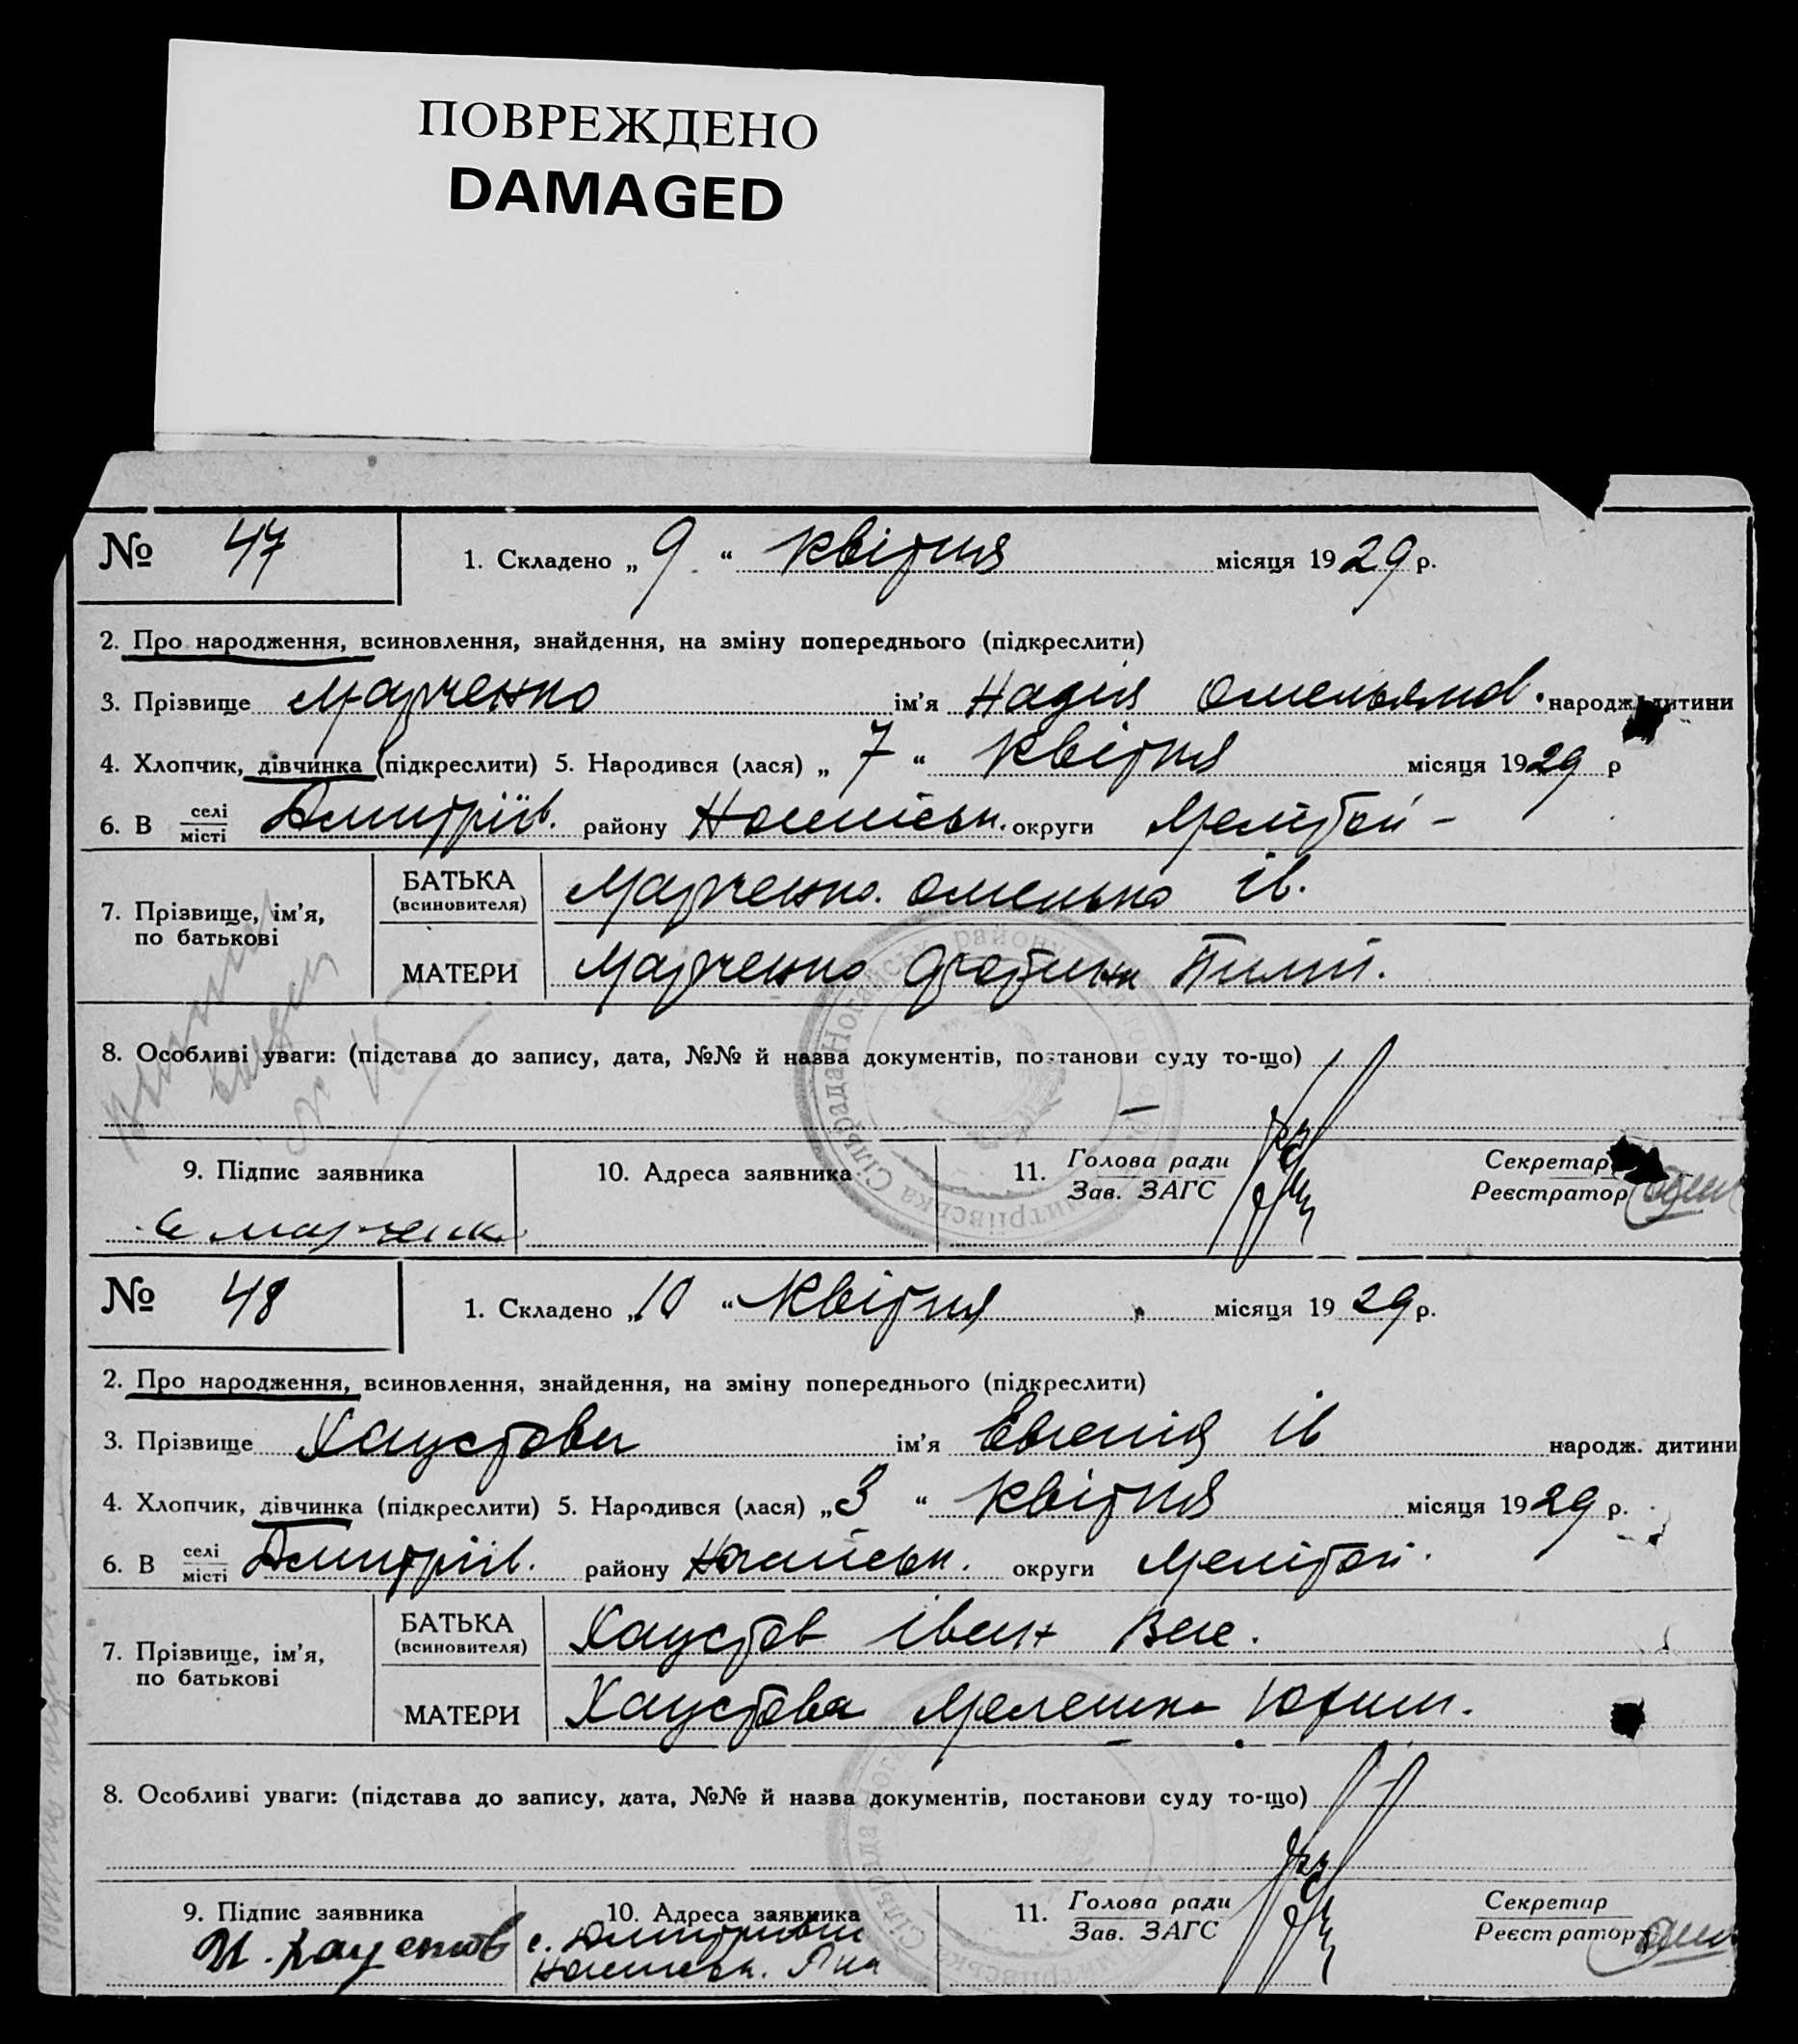 ПОВРЕЖДЕНО
DAMAGED
№ 47 1. Складено „ 9 “ квітня місяця 1929 р.
2. Про народження, всиновлення, знайдення, на зміну попереднього (підкреслити)
3. Прізвище Марченко ім’я Надія Омельянов. народж. дитини
4. Хлопчик, дівчинка (підкреслити) 5. Народився (лася) „ 7 “ квітня місяця 1929 р
6. В селі Дмитріїв. району Ногайськ. округи Мелітоп -
місті
7. Прізвище, ім’я, по батькові
БАТЬКА (всиновителя) Марченко Омелько Ів.
МАТЕРИ Марченко Пилип.
8. Особливі уваги: (підстава до запису, дата, №№ й назва документів, постанови суду то-що)
9. Підпис заявника 10. Адреса заявника 11. Голова ради Секретар
Зав. ЗАГС Реєстратор
Марченк
№ 48 1. Складено „10 “ квітня місяця 1929 р.
2. Про народження, всиновлення, знайдення, на зміну попереднього (підкреслити)
3. Прізвище Хаустова ім’я Евгенія Ів народж. дитини
4. Хлопчик, дівчинка (підкреслити) 5. Народився (лася) „3 “ квітня місяця 1929 р.
6. В селі Дмитріїв. району Ногайськ. округи Мелітоп.
місті
7. Прізвище, ім’я, по батькові
БАТЬКА (всиновителя) Хаустов Іван Вас.
МАТЕРИ Хаустова Мелешка Юхим.
8. Особливі уваги: (підстава до запису, дата, №№ й назва документів, постанови суду то-що)
9. Підпис заявника 10. Адреса заявника 11. Голова ради Секретар
Зав. ЗАГС Реєстратор
И. Хаустов с. Дмитрівки
Ногайськ. Р-на